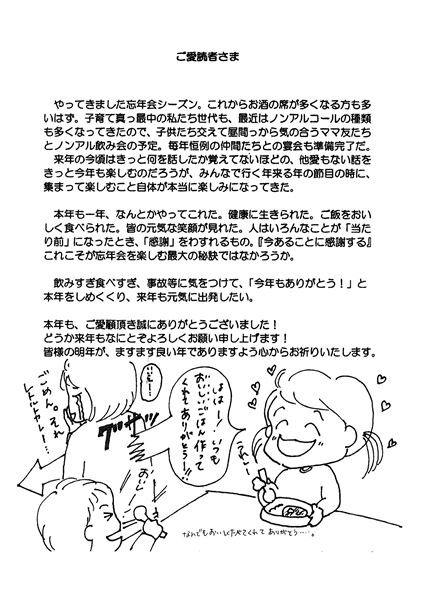 ご愛読者さま
やってきました忘年会シーズン。これからお酒の席が多くなる方も多
いはず。子育て真っ最中の私たち世代も、最近はノンアルコールの種類
も多くなってきたので、子供たち交えて昼間っから気の合うママ友たち
とノンアル飲み会の予定。毎年恒例の仲間たちとの宴会も準備完了だ。
来年の今頃はきっと何を話したか覚えてないほどの、他愛もない話を
きっと今年も楽しむのだろうが、みんなで行く年来る年の節目の時に、
集まって楽しむこと自体が本当に楽しみになってきた。
本年も一年、なんとかやってこれた。健康に生きられた。ご飯をおい
しく食べられた。皆の元気な笑顔が見れた。人はいろんなことが「当た
り前」になったとき、「感謝」をわすれするもの。『今あることに感謝する』
これこそが忘年会を楽しむ最大の秘訣ではなかろうか。
飲みすぎ食べすぎ、事故等に気をつけて、「今年もありがとう！」と
本年をしめくくり、来年も元気に出発したい。
本年も、ご愛顧頂き誠にありがとうございました！
どうか来年もなにとぞよろしくお願い申し上げます！
皆様の明年が、ますます良い年でありますよう心からお祈りいたします。
ははー！いつも
おいしいごはん作って
くれてありがとう!!
うれしー
いえ…
グサッ
ごめん。それ
レトルトカレー…
おいし
なんでもおいしくたべてくれて ありがとう…。